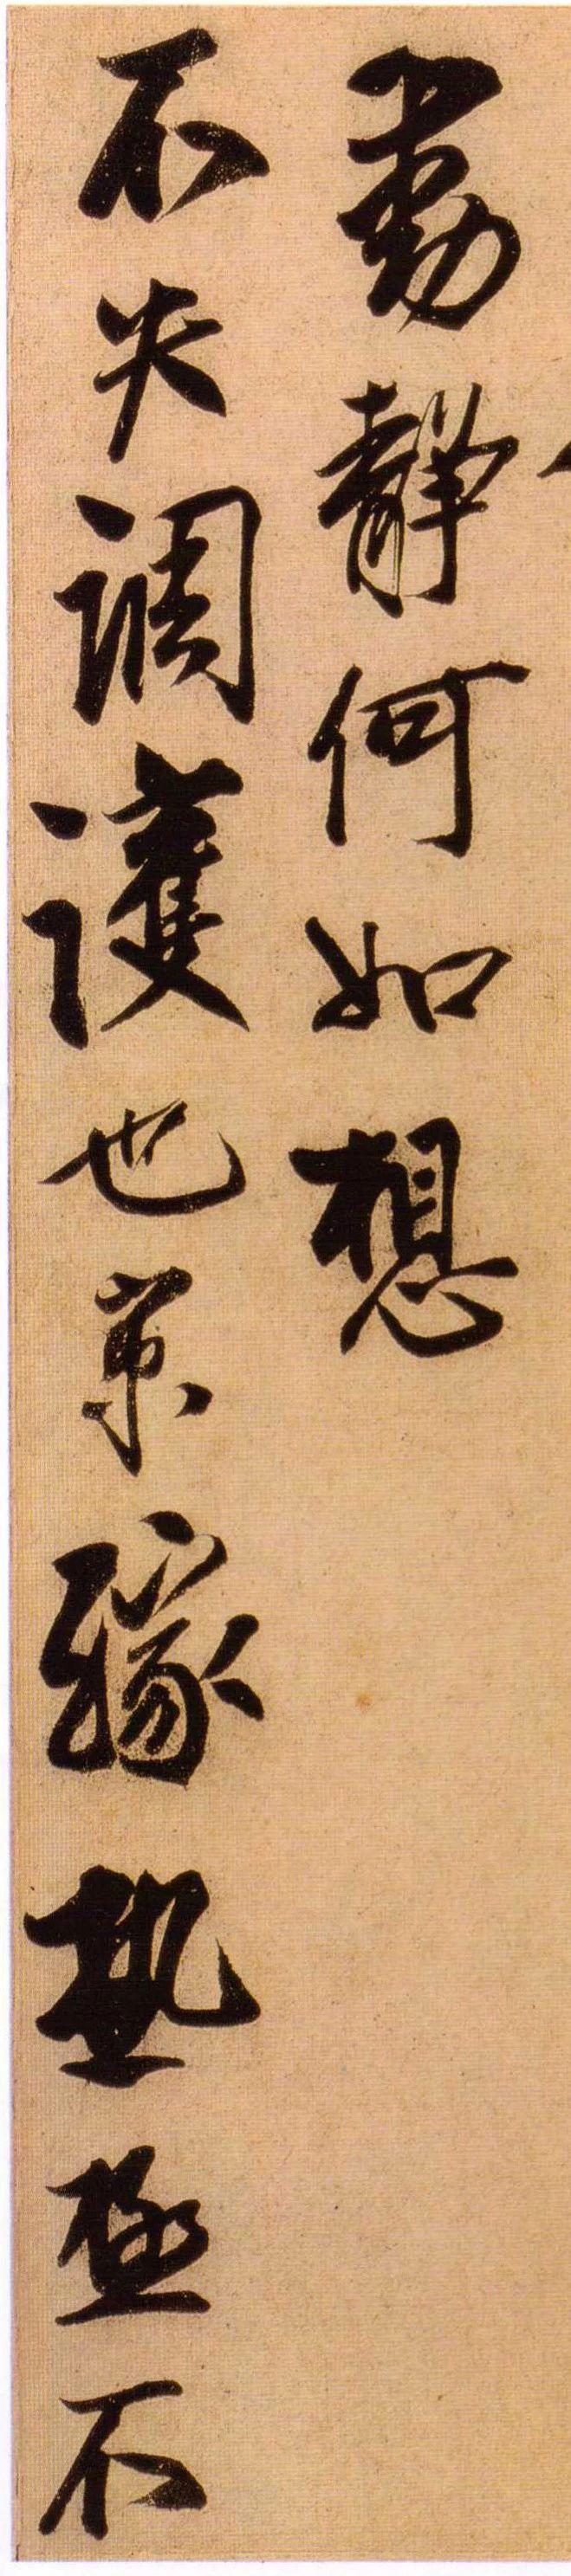 動靜何如想
不失調護也京緣熱極不